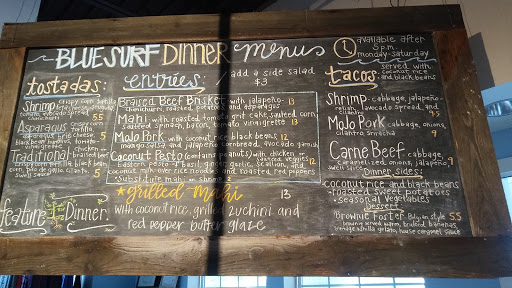 BLUE SURF DINNER menus
tostadas:
Shrimp
crispy corn tortilla
tomato, avocado spread
5.5
Asparagus
black beans, hummus
tomato, vinaigrette
5
Traditional
braised beef
corn, pico de gallo, cilantro
swell sauce
5
feature Dinner.
entrées:
add a side salad
$3
Braised Beef Brisket with jalapeño
chimichurri, roasted potatoes and asparagus 13
Mahi with roasted tomato grit cake, sautéed corn,
sautéed spinach, bacon, tomato vinaigrette 13
Mojo Pork with coconut rice, black beans, 12
mango and jalapeño cornbread, avocado garnish
Coconut Pesto (contains peanuts) with chicken or
sautéed veggies 12
coconut milk over rice noodles and roasted red peppers
Substitute mahi or shrimp 2
★ grilled mahi 13
with coconut rice, grilled zuchini and
red pepper butter glaze
available after
5 p.m.
monday-saturday
tacos:
served with
coconut rice
and black beans
Shrimp - cabbage, jalapeño
relish, avocado spread, and
cilantro 9.5
Mojo Pork - cabbage, onions,
cilantro, sriracha 9
Carne Beef - cabbage,
caramelized onions, jalapeños,
swell sauce 9
Dinner sides:
coconut rice and black beans
• roasted sweet potatoes
• seasonal vegetables
Dessert
Brownie Foster 5.5
brownie served warm, bruleed bananas,
vanilla gelato, house caramel sauce